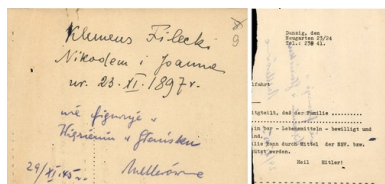 9
Klemens Filecki
Nikodem i Joanna
ur. 23. XI. 1897 r.
nie figuruje w
Więzieniu w
29/XI.45 r.
Danzig, den
Neugarten 23/24
Tel.: 41.
führt
itgeteilt, daß der Familie
in bar - Lebensmitteln - bewilligt und
nd.
lie kann durch Mittel der NSV. bew.
ützt werden.
Heil Hitler!